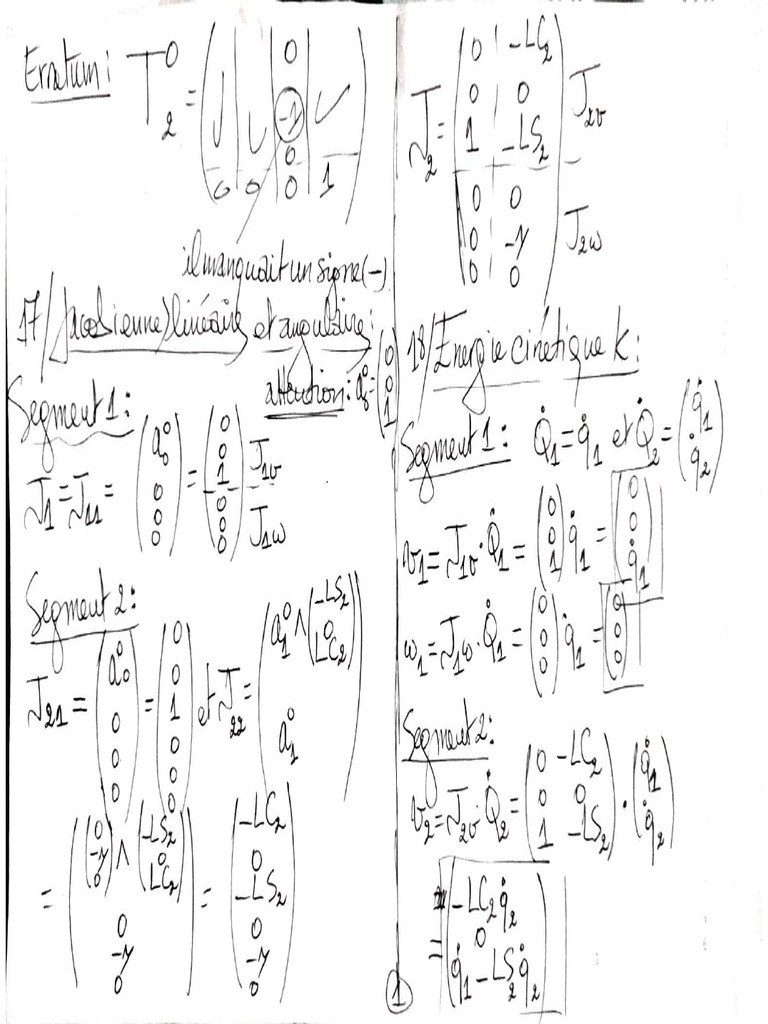 Erratum: T_2^0 = ( ✓ | ✓ | 0 -1 0 | ✓ )
( 0 | 0 | 0 | 1 )
il manquait un signe (-)
17/ Jacobienne linéaire et angulaire:
attention: a_0^0 = (0 0 1)
Segment 1:
J_1 = J_11 = (a_0^0 0 0 0) = (0 0 1 0 0 0) J_1v J_1w
Segment 2:
J_21 = (a_0^0 0 0 0) = (0 0 1 0 0 0) et J_22 = (a_1^0 ∧ (-LS_2 0 LC_2) a_1^0)
= ((0 -1 0) ∧ (-LS_2 0 LC_2) 0 -1 0) = (-LC_2 0 -LS_2 0 -1 0)
J_2 = ( 0 | -LC_2
0 | 0
1 | -LS_2 ) J_2v
( 0 0
0 -1
0 0 ) J_2w
18/ Energie cinétique k:
Segment 1: Q̇_1 = q̇_1 et Q̇_2 = (q̇_1 q̇_2)
v_1 = J_1v · Q̇_1 = (0 0 1) q̇_1 = (0 0 q̇_1)
w_1 = J_1w · Q̇_1 = (0 0 0) · q̇_1 = (0 0 0)
Segment 2:
v_2 = J_2v · Q̇_2 = (0 -LC_2 0 0 1 -LS_2) · (q̇_1 q̇_2)
= (-LC_2 q̇_2 0 q̇_1 - LS_2 q̇_2)
1